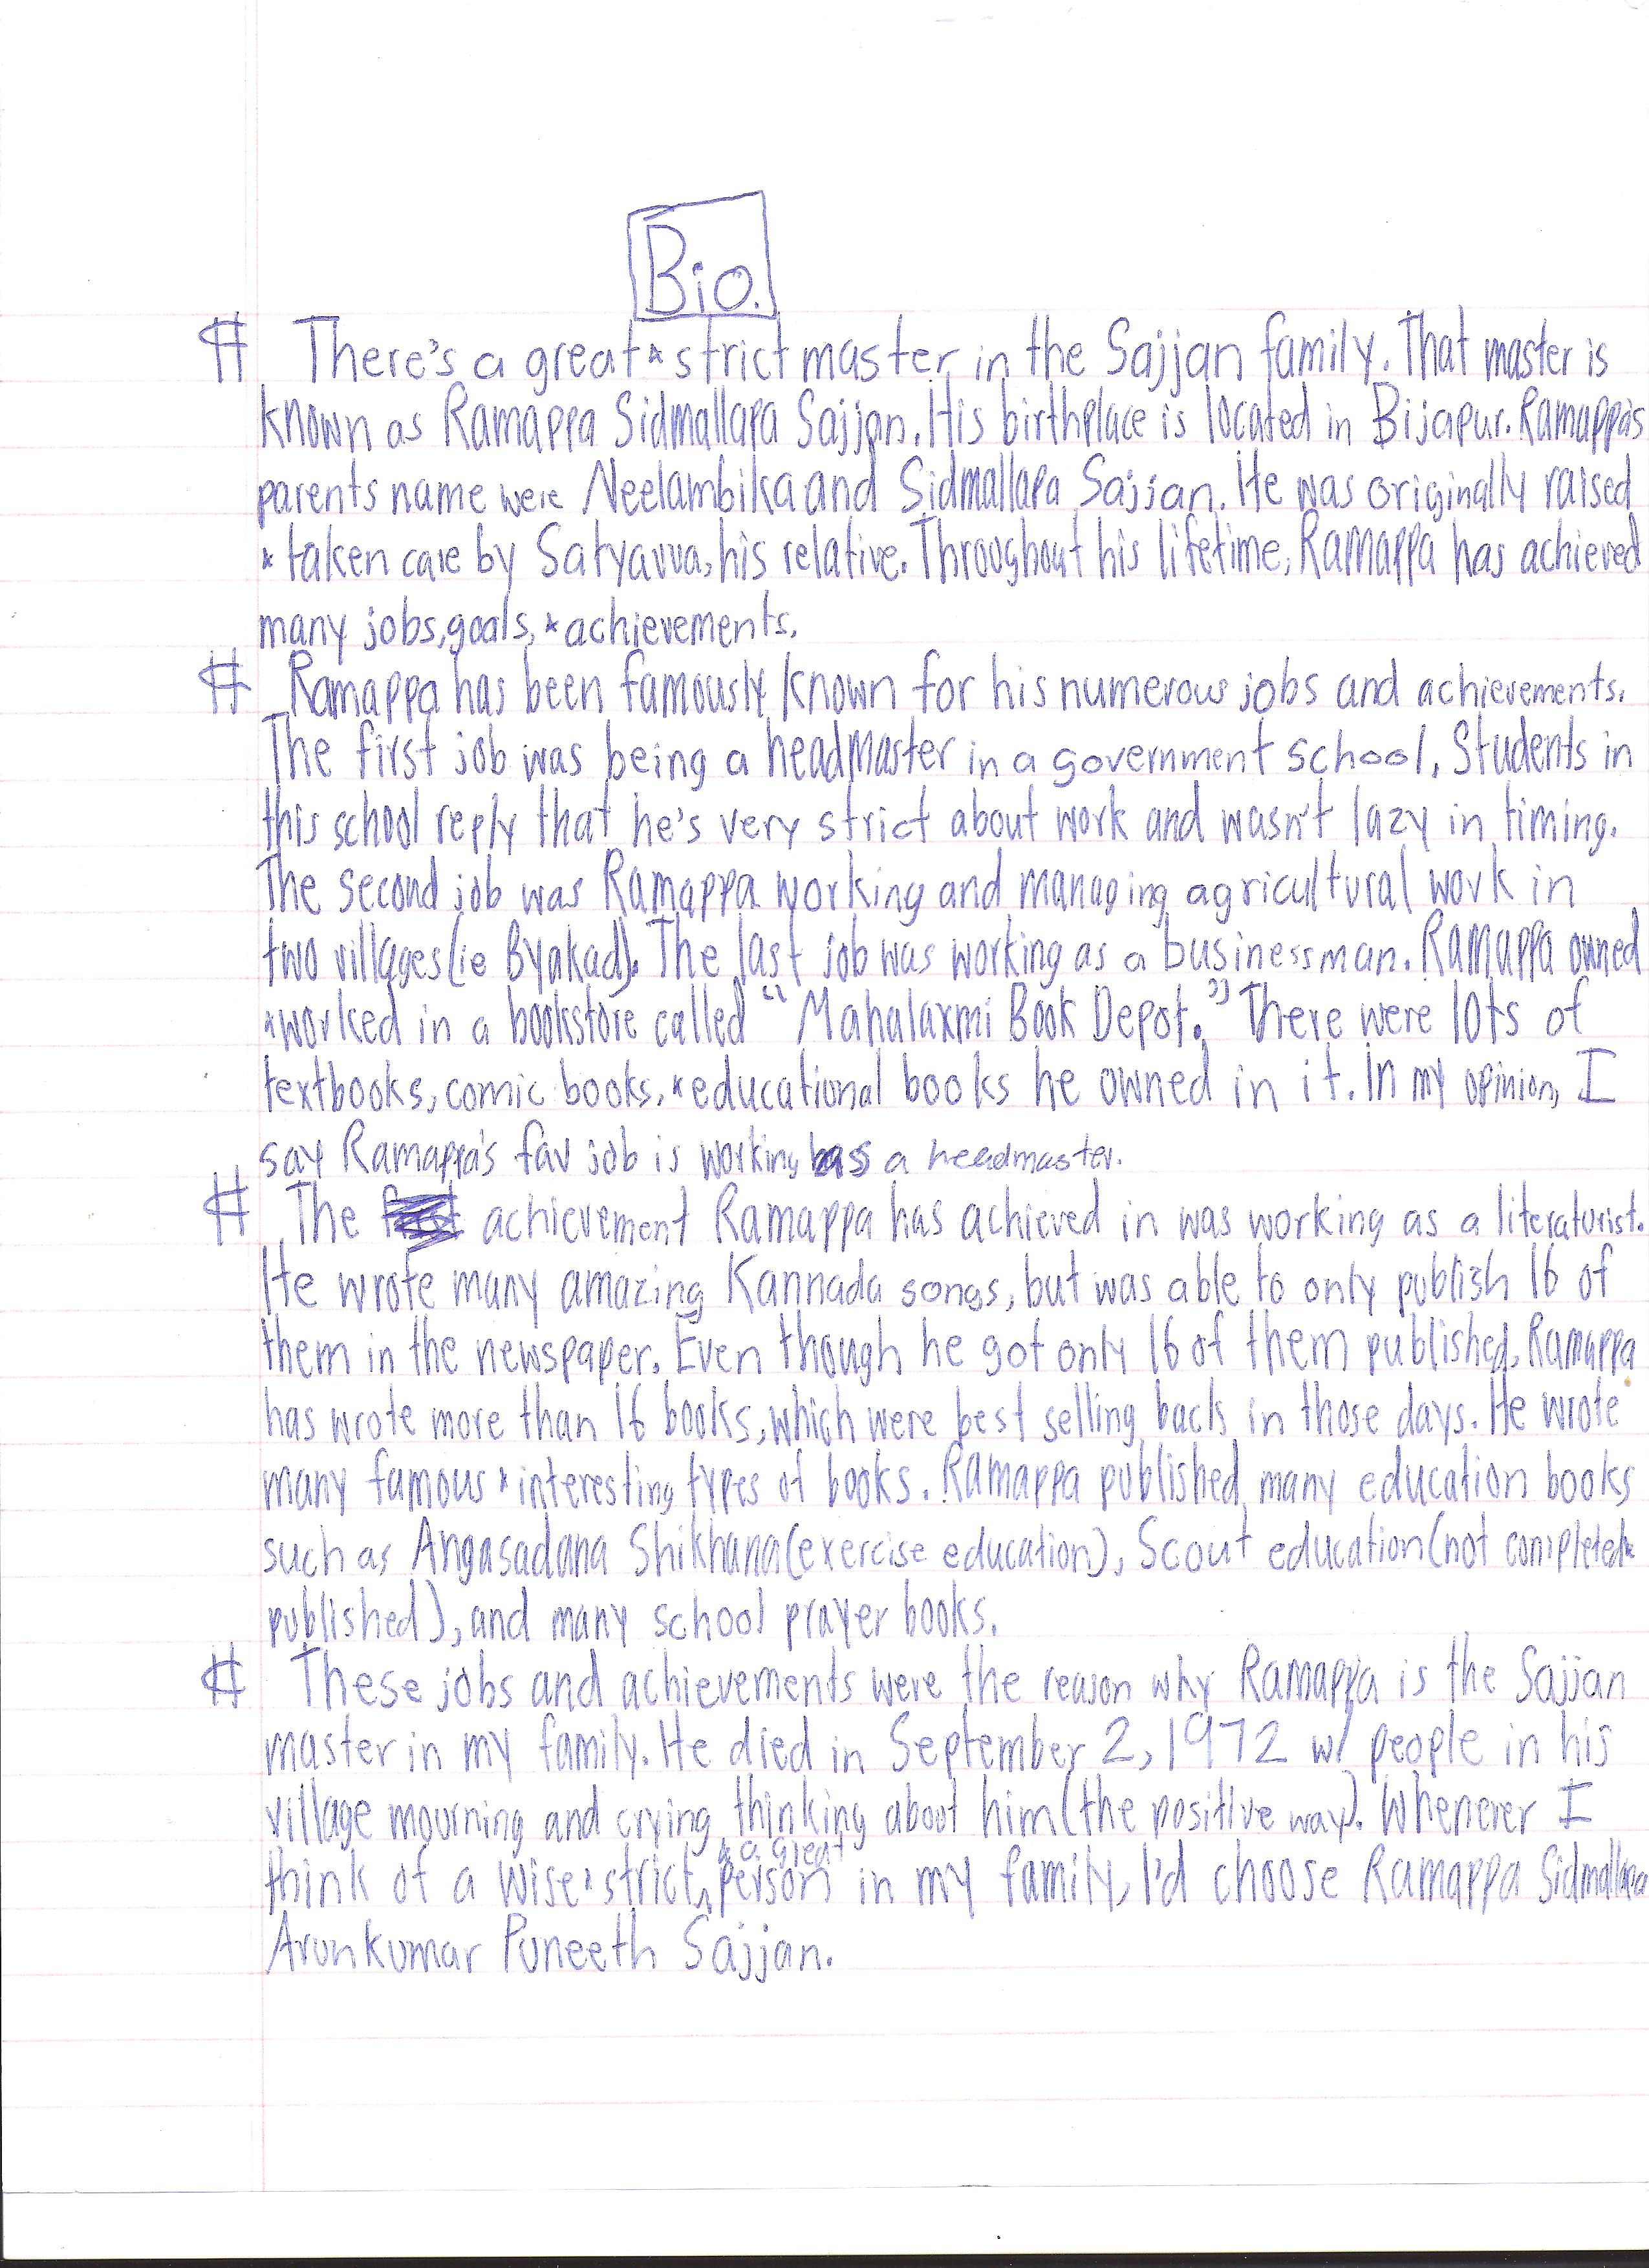 Bio.
There's a great & strict master in the Sajjan family. That master is
known as Ramappa Sidmallapa Sajjan. His birthplace is located in Bijapur. Ramappa's
parents name were Neelambika and Sidmallapa Sajjan. He was originally raised
& taken care by Satyavva, his relative. Throughout his lifetime, Ramappa has achieved
many jobs, goals, & achievements.
Ramappa has been famously known for his numerous jobs and achievements.
The first job was being a headmaster in a government school. Students in
this school reply that he's very strict about work and wasn't lazy in timing.
The second job was Ramappa working and managing agricultural work in
two villages (ie Byakad). The last job was working as a businessman. Ramappa owned
& worked in a bookstore called "Mahalaxmi Book Depot." There were lots of
textbooks, comic books, & educational books he owned in it. In my opinion, I
say Ramappa's fav job is working as a headmaster.
The achievement Ramappa has achieved in was working as a literaturist.
He wrote many amazing Kannada songs, but was able to only publish 16 of
them in the newspaper. Even though he got only 16 of them published, Ramappa
has wrote more than 16 books, which were best selling back in those days. He wrote
many famous & interesting types of books. Ramappa published many education books
such as Angasadana Shikhana (exercise education), Scout education (not completed &
published), and many school prayer books.
These jobs and achievements were the reason why Ramappa is the Sajjan
master in my family. He died in September 2, 1972 w/ people in his
village mourning and crying thinking about him (the positive way). Whenever I
think of a wise & strict, & a great person in my family, I'd choose Ramappa Sidmallapa
Arunkumar Puneeth Sajjan.